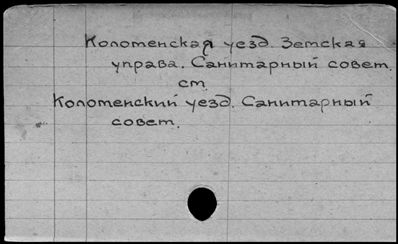 Коломенская уезд. Земская
управа. Санитарный совет.
см.
Коломенский уезд. Санитарный
совет.